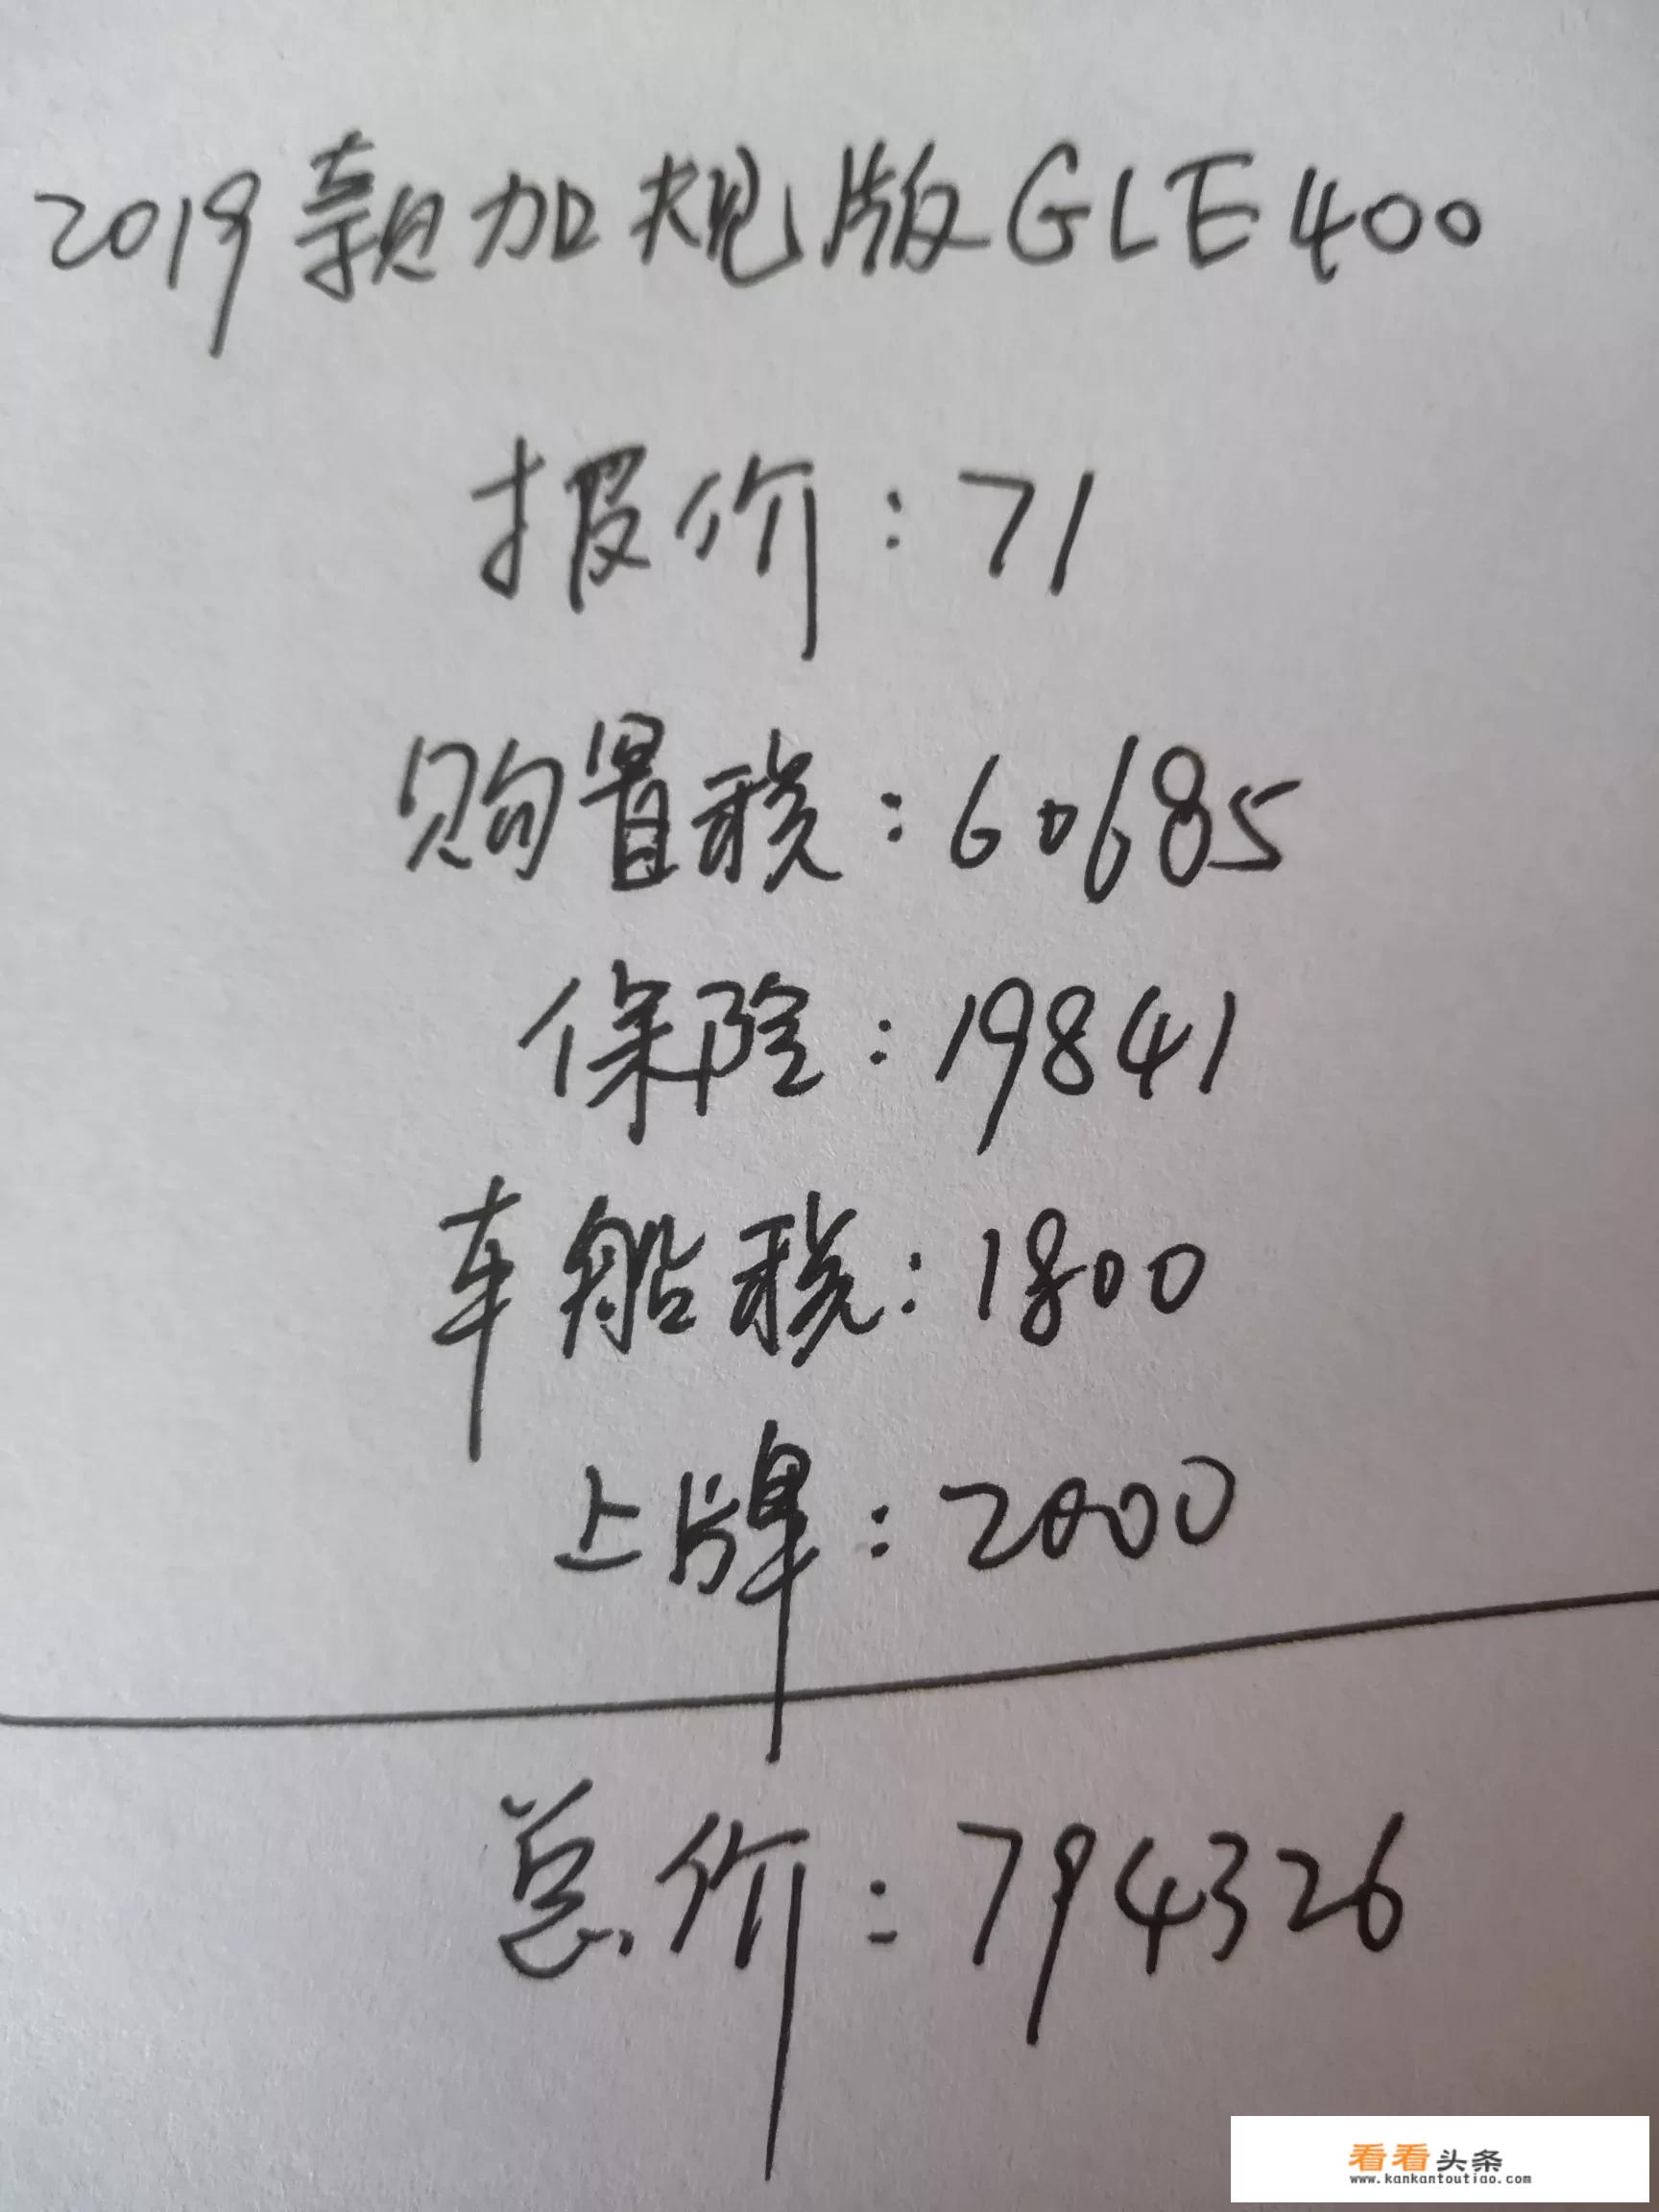 2019款加规版GLE400
报价:71
购置税:60685
保险:19841
车船税:1800
上牌:2000
总价:794326
看看头条
www.kankantoutiao.com